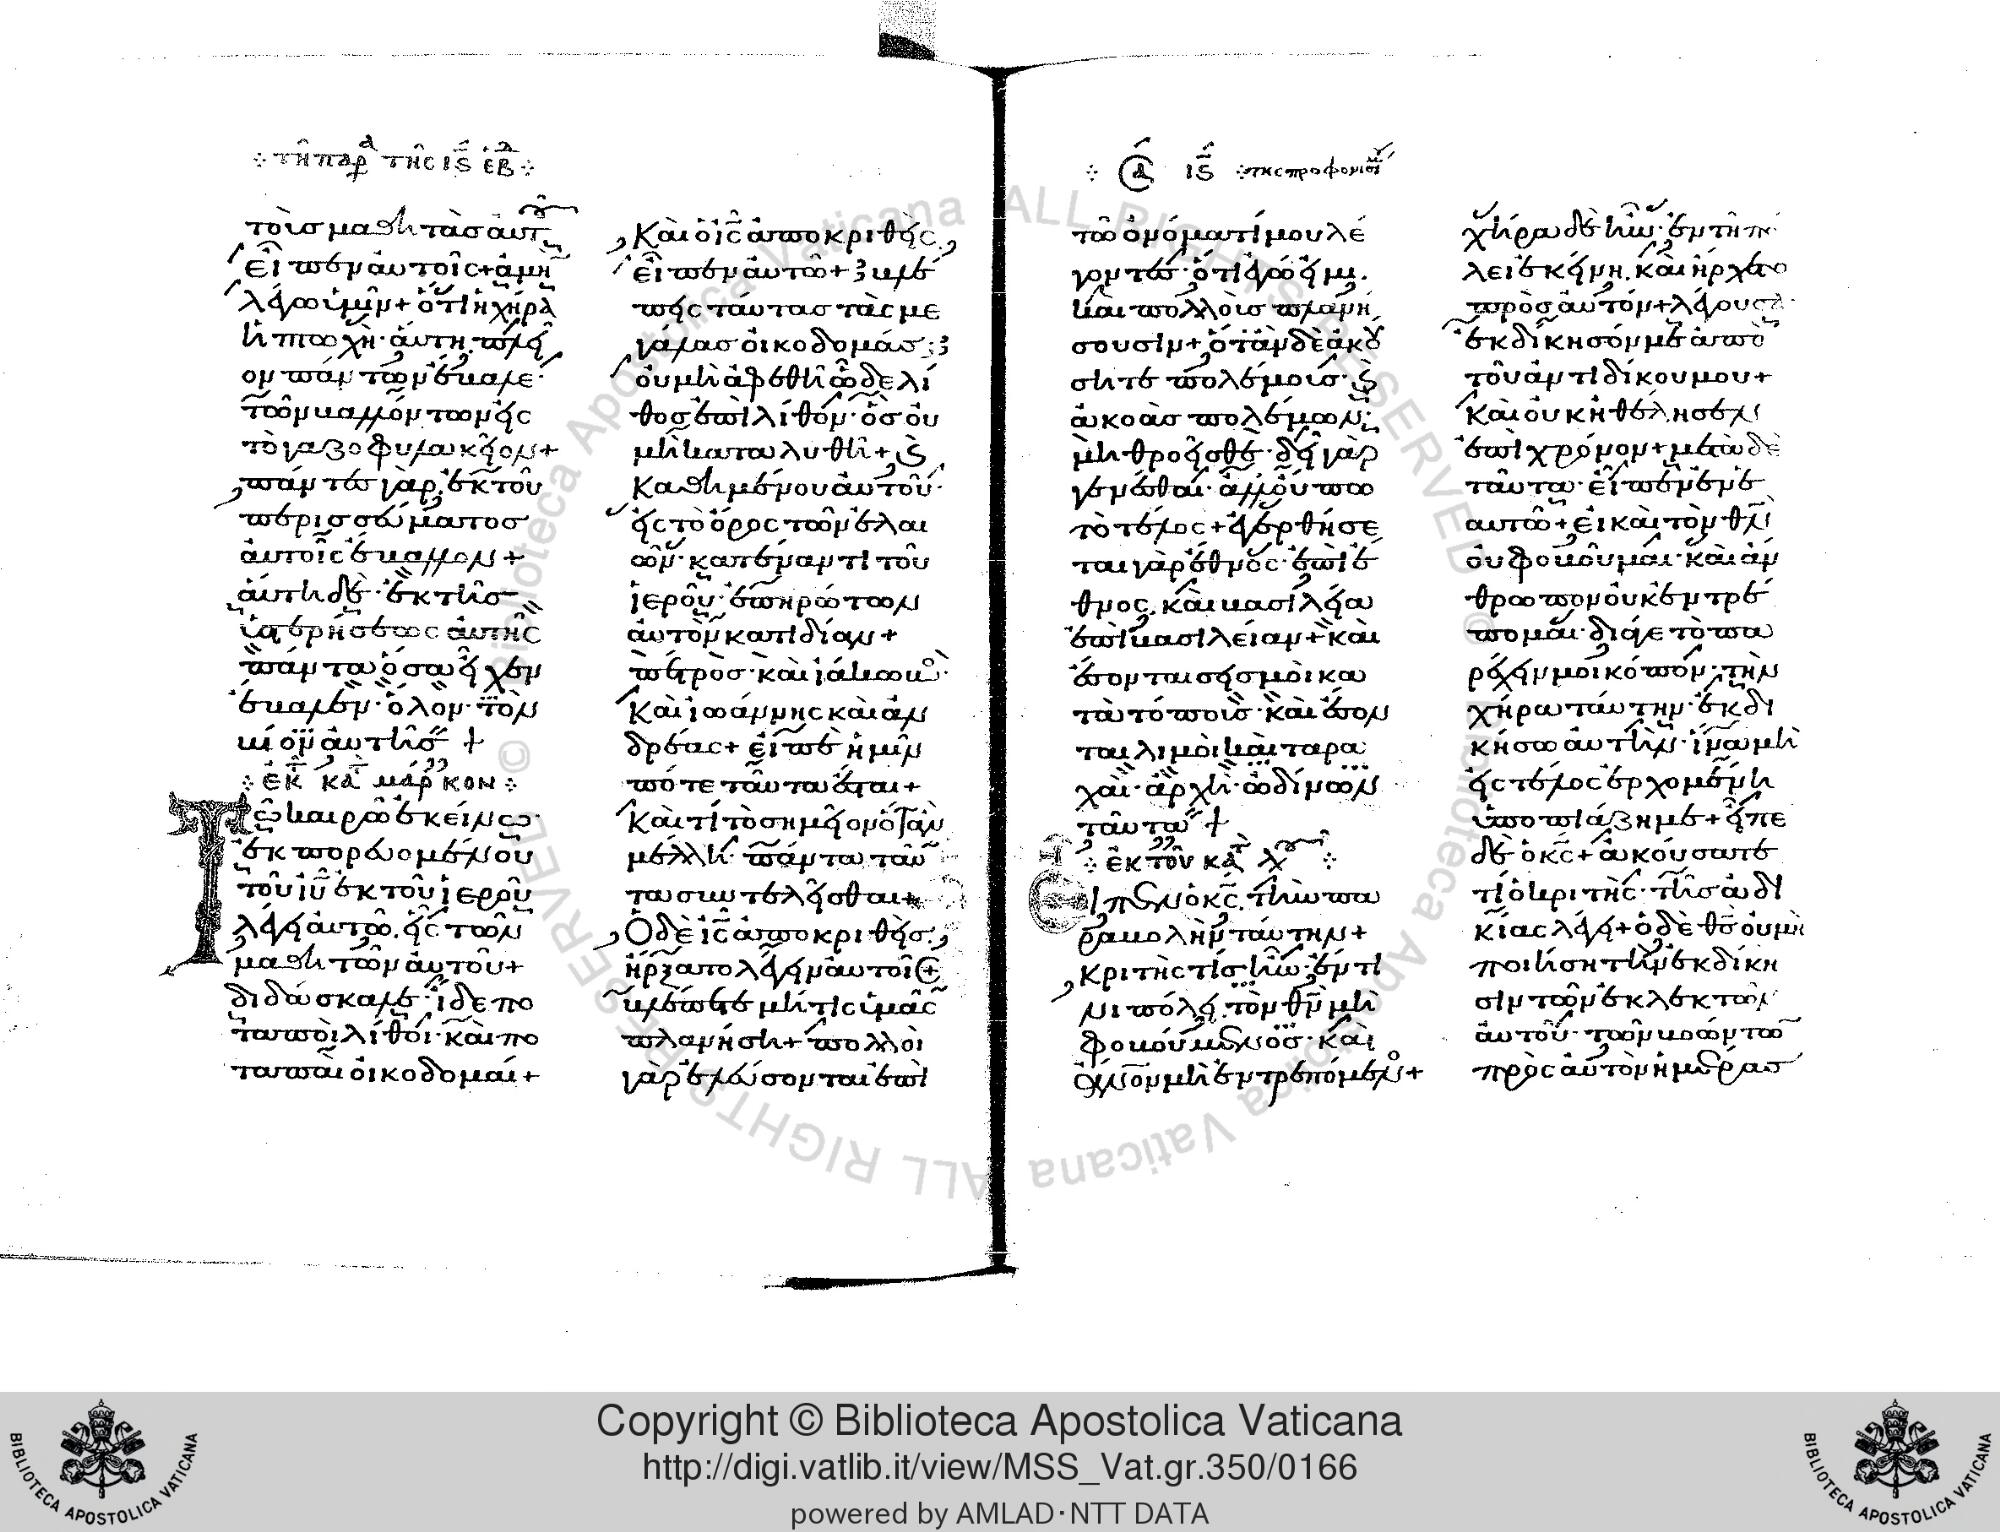 ⁘ τῆ παρα τῆς ις ἑβ ⁘
τοῖσ μαθητὰσ αὐτου
εἶπεν αὐτοῖς + ἀμὴν
λέγω ὑμῖν + ὅτι ἡ χήρα
ἡ πτωχὴ· αὕτη, πλεῖ
ον πάντων ἔβαλε·
τῶν βαλλόντων εἰς
τὸ γαζοφυλακεῖον +
πάντες γὰρ, ἐκ τοῦ
περισσεύματοσ
αὐτοῖς ἔβαλλον +
αὕτη δὲ· ἐκ τῆσ
ὑστερήσεως αὐτῆς
πάντα ὅσα εἶχεν
ἔβαλεν· ὅλον· τὸν
βίον αὐτῆσ +
⁘ ἐκ κατὰ μάρκον ⁘
Τῶ καιρῶ ἐκείνω·
ἐκπορευομένου
τοῦ ιυ ἐκ τοῦ ἱεροῦ
λέγει αὐτῶ, εἷς τῶν
μαθητῶν αὐτοῦ +
διδάσκαλε· ἴδε πο
ταποὶ λίθοι· καὶ πο
ταπαὶ οἰκοδομαί +
Καὶ ὁ ις ἀποκριθεὶς,
εἶπεν αὐτῶ + βλέ
πεις ταύτασ τὰς με
γάλασ οἰκοδομάσ;
οὐ μὴ ἀφεθῆ ὧδε λί
θοσ ἐπὶ λίθον· ὃσ οὐ
μὴ καταλυθῆ + Καὶ
καθημένου αὐτοῦ·
εἰς τὸ ὄρος τῶν ἐλαι
ῶν· κατέναντι τοῦ
ἱεροῦ· ἐπηρώτων
αὐτὸν κατιδίαν +
πέτρὸσ· καὶ ἰάκωβος·
Καὶ ἰωάννης καὶ ἀν
δρέας + εἶπὲ ἡμῖν
πότε ταῦτα ἔσται +
Καὶ τί τὸ σημεῖον ὅταν
μέλλη· πάντα ταῦ
τα συντελεῖσθαι +
Ὁ δὲ ις ἀποκριθεὶσ,
ἤρξατο λέγειν αὐτοῖς +
βλέπετε μή τις ὑμᾶς
πλανήση + πολλοὶ
γὰρ ἐλεύσονται ἐπὶ
⁘ ις ⁘ της προφωνησι
τῶ ὀνόματί μου λέ
γοντες· ὅτι ἐγώ εἰμι.
καὶ πολλοὺσ πλανή
σουσιν + ὅταν δὲ ἀκού
σητε πολέμουσ· καὶ
ἀκοὰσ πολέμων·
μὴ θροεῖσθε· δεῖ γὰρ
γενέσθαι· ἀλλ' οὔπω
τὸ τέλος + ἐγερθήσε
ται γὰρ ἔθνος· ἐπὶ ἔ
θνος, καὶ βασιλεία
ἐπὶ βασιλείαν + καὶ
ἔσονται σεισμοὶ κα
τὰ τόπουσ· καὶ ἔσον
ται λιμοὶ καὶ ταρα
χαί· ἀρχὴ· ὠδίνων
ταῦτα +
⁘ ἐκ τοῦ κατὰ λουκᾶν ⁘
Εἶπεν ὁ κς, τὴν πα
ραβολὴν ταύτην +
κριτὴς τίσ ἦν· ἔν τι
νι πόλει, τὸν θν μὴ
φοβούμενοσ· καὶ
ἄνον μὴ ἐντρεπόμενος +
χήρα δὲ ἦν· ἐν τῆ πό
λει ἐκείνη, καὶ ἤρχετο
πρὸσ αὐτὸν + λέγουσα·
ἐκδίκησόν με ἀπὸ
τοῦ ἀντιδίκου μου +
Καὶ οὐκ ἠθέλησεν
ἐπὶ χρόνον + μετὰ δὲ
ταῦτα· εἶπεν ἐν ἑ
αυτῶ + εἰ καὶ τὸν θν
οὐ φοβοῦμαι· καὶ ἄν
θρωπον οὐκ ἐντρέ
πομαι· διά γε τὸ πα
ρέχειν μοι κόπον· τὴν
χήρα ταύτην· ἐκδι
κήσω αὐτήν· ἵνα μὴ
εἰς τέλος ἐρχομένη
ὑποπιάζη με + εἶπε
δὲ ὁ κς + ἀκούσατε
τί ὁ κριτὴς· τῆσ ἀδι
κίας λέγει + ὁ δὲ θς οὐ μὴ
ποιήση τὴν ἐκδίκη
σιν τῶν ἐκλεκτῶν
αὐτοῦ· τῶν βοώντω
πρὸς αὐτὸν ἡμέρασ
Copyright © Biblioteca Apostolica Vaticana
http://digi.vatlib.it/view/MSS_Vat.gr.350/0166
powered by AMLAD·NTT DATA